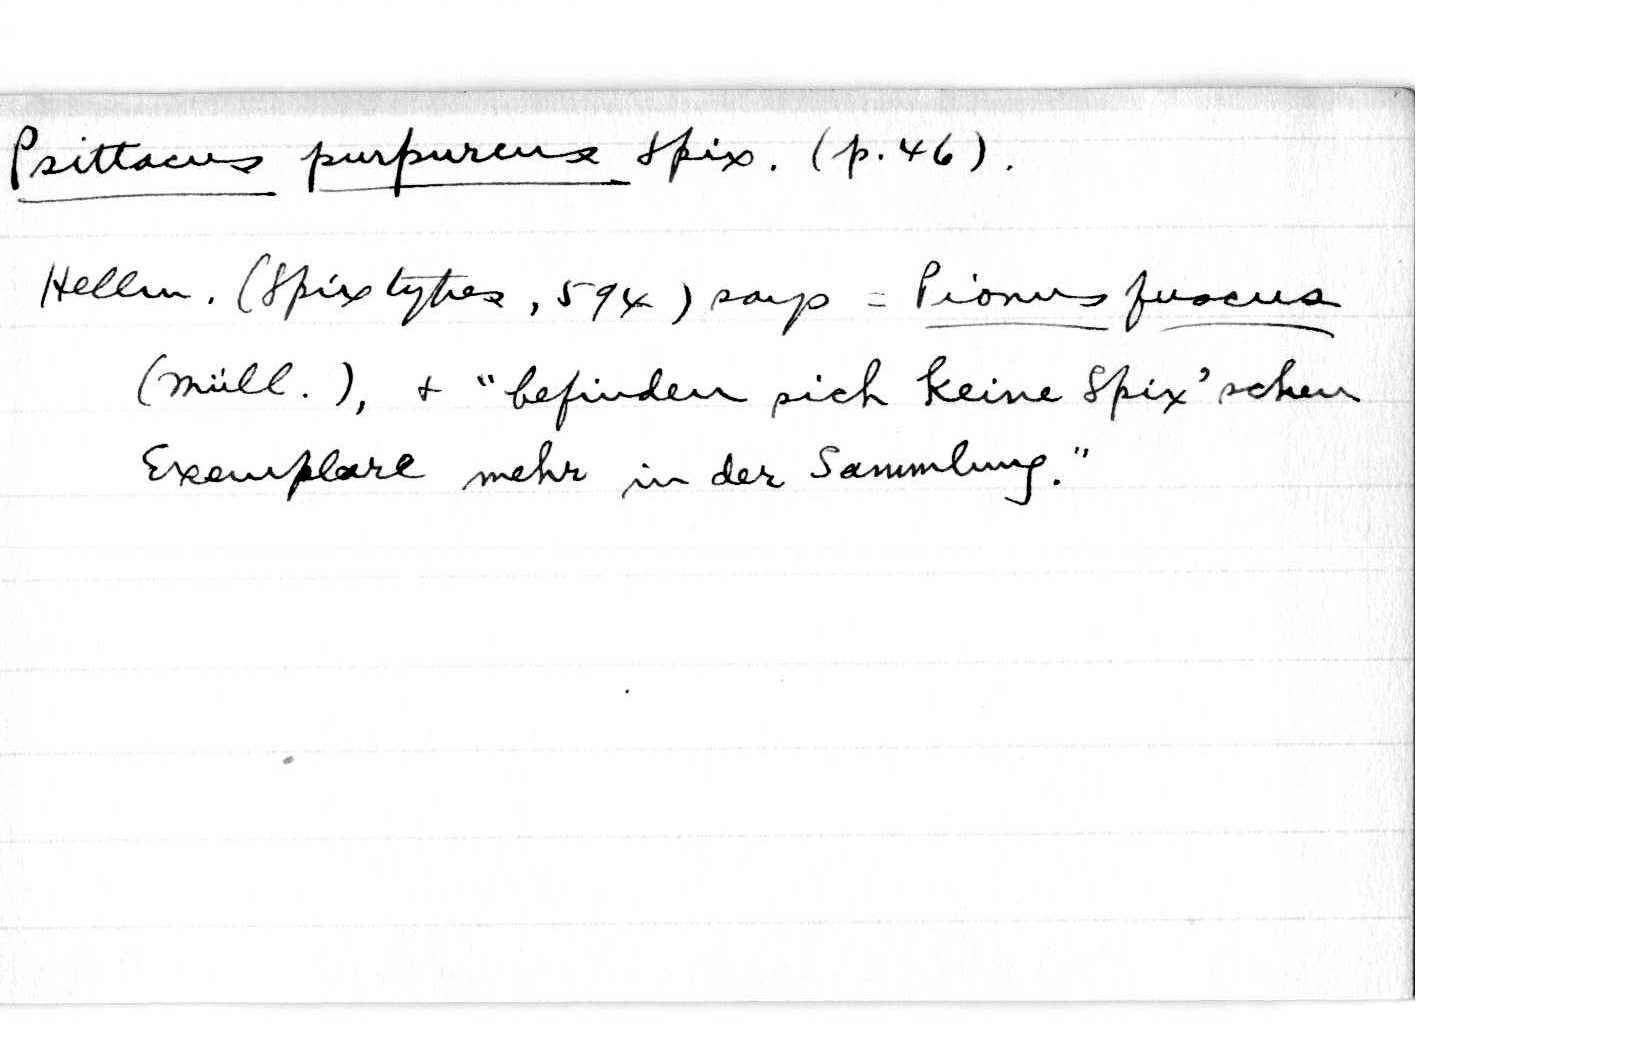 Psittacus purpureus Spix. (p. 46).
Hellm. (Spix types, 594) says = Pionus fuscus
(Müll.), + "befinden sich keine Spix'schen
Exemplare mehr in der Sammlung."